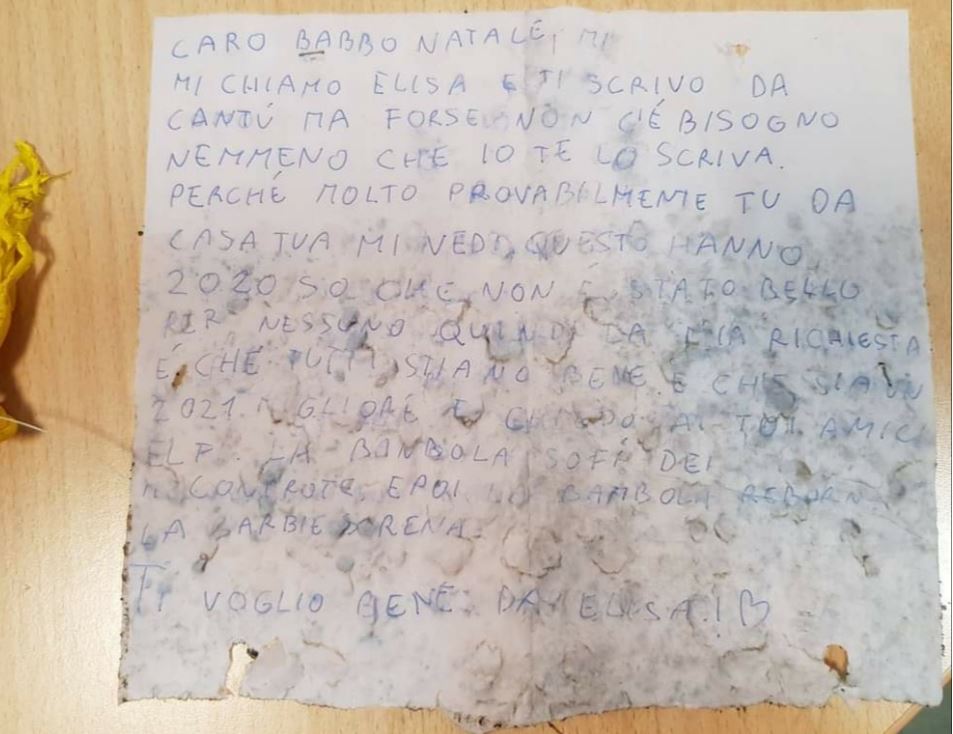 CARO BABBO NATALE, MI
MI CHIAMO ELISA E TI SCRIVO DA
CANTÚ MA FORSE NON C'É BISOGNO
NEMMENO CHE IO TE LO SCRIVA.
PERCHÉ MOLTO PROVABILMENTE TU DA
CASA TUA MI VEDI, QUESTO HANNO
2020 SO CHE NON É STATO BELLO
PER NESSUNO QUINDI LA MIA RICHIESTA
É CHE TUTTI STIANO BENE E CHE SIA UN
2021 MIGLIORE E CHIEDO AI TOI AMICI
ELFI LA BAMBOLA SOFI DEI
ME CONTRO TE E POI LA BAMBOLA REBORN
LA BARBIE SIRENA.
TI VOGLIO BENE. DA ELISA!